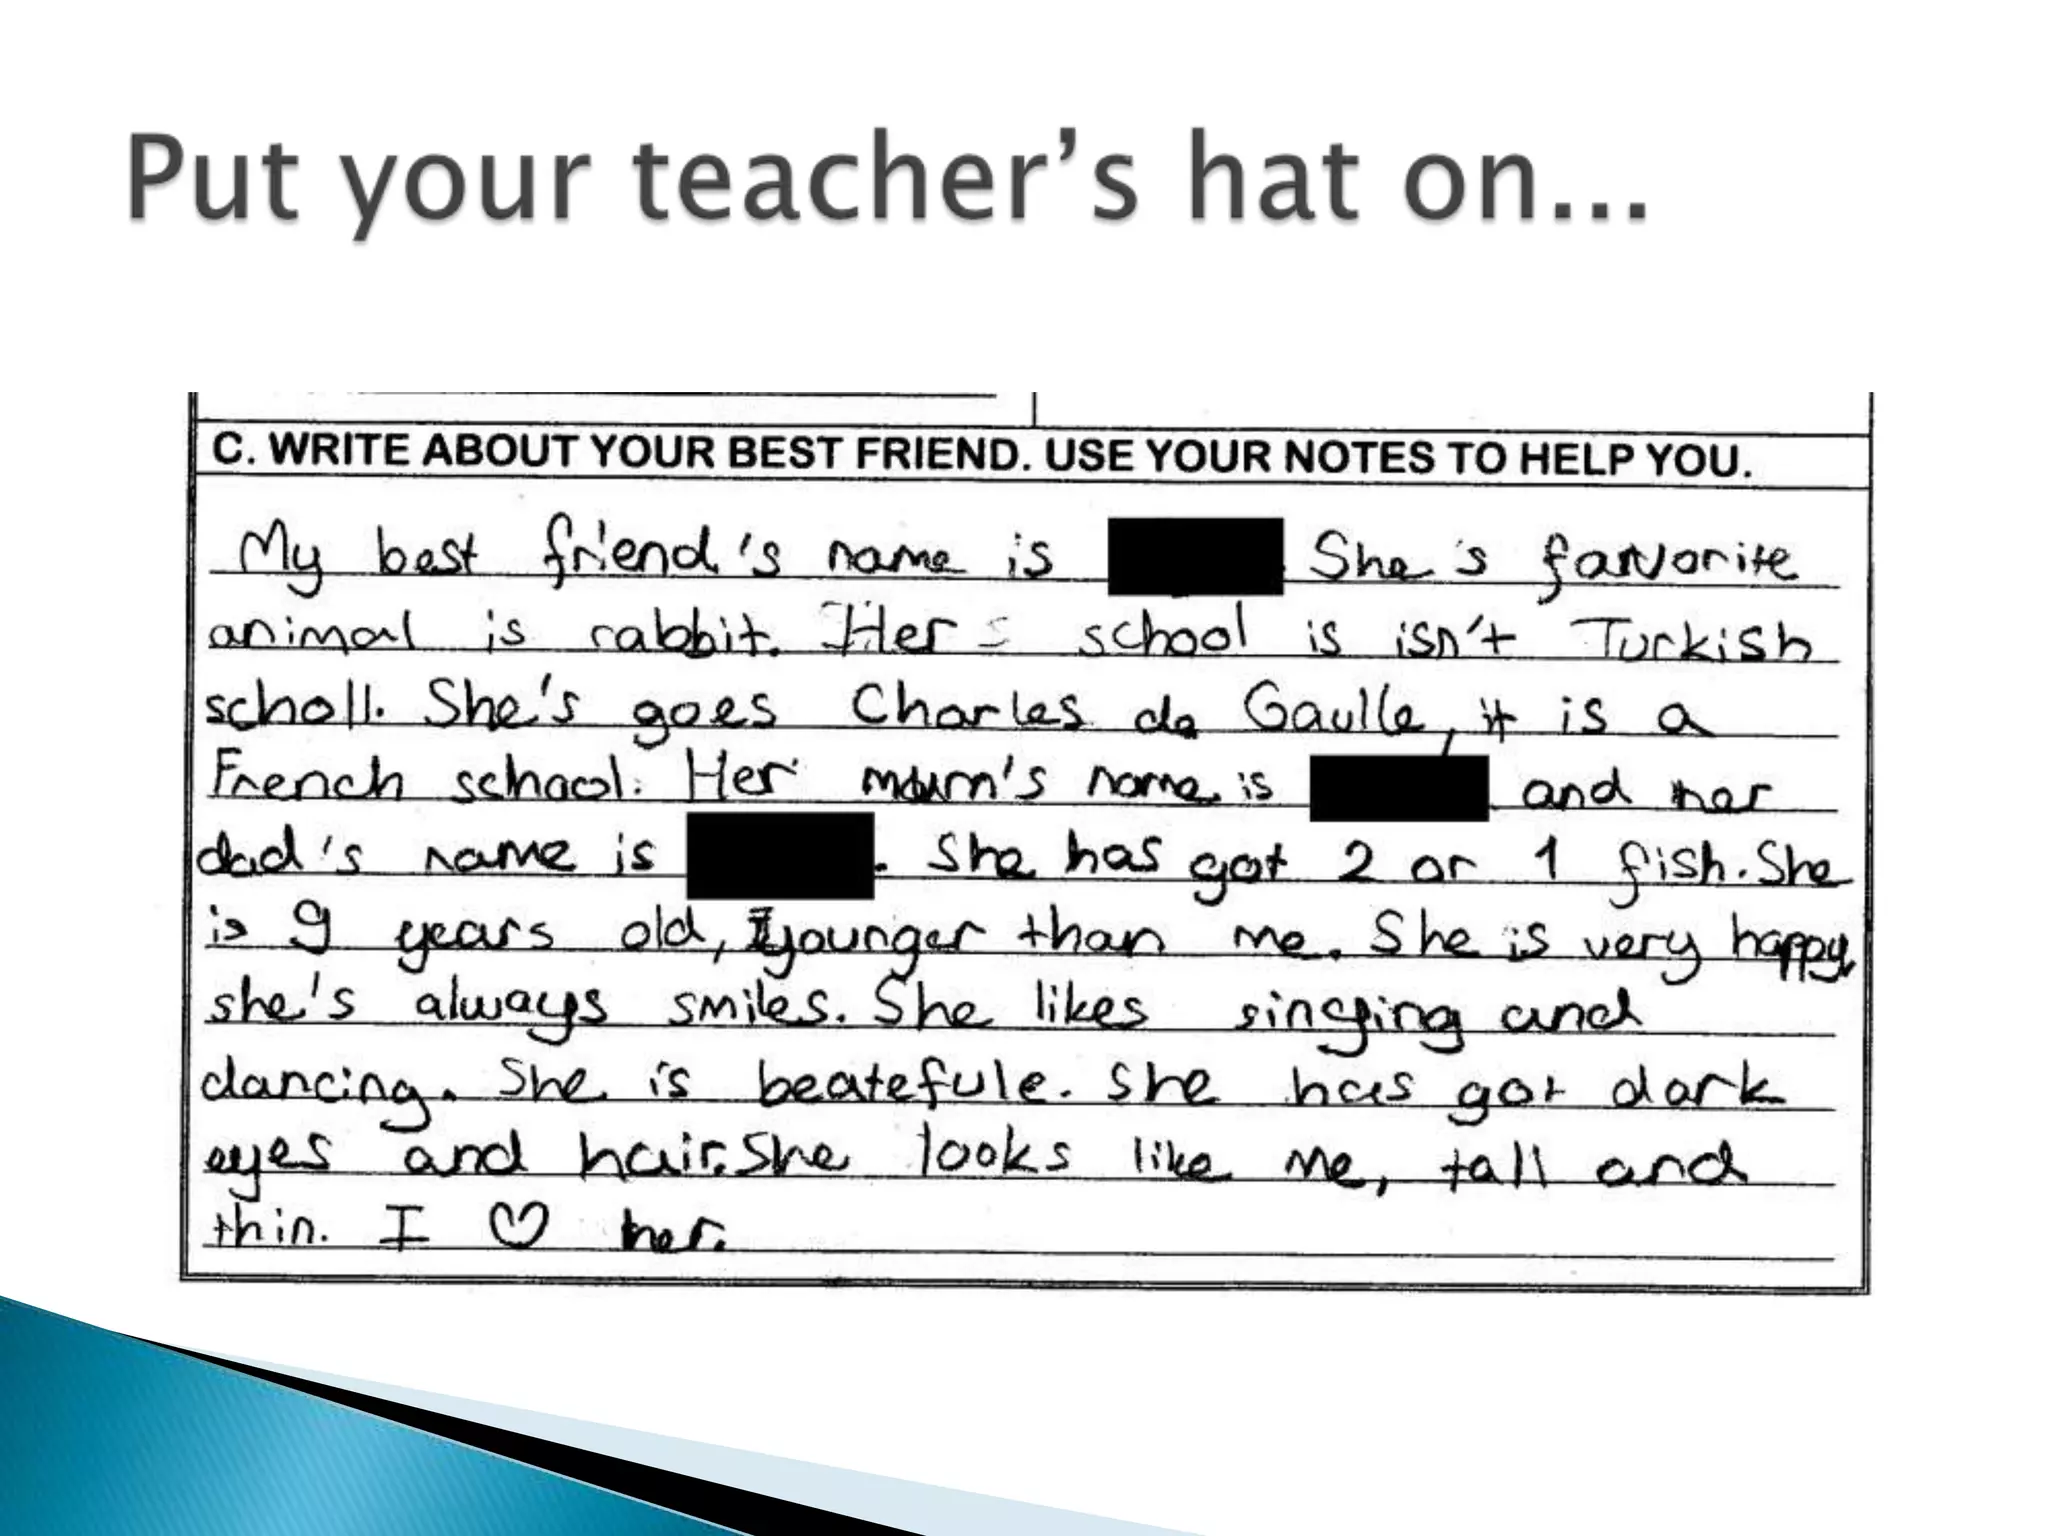 Put your teacher's hat on...
C. WRITE ABOUT YOUR BEST FRIEND. USE YOUR NOTES TO HELP YOU.
My best friend's name is She's favorite
animal is rabbit. Her school is isn't Turkish
scholl. She's goes Charles de Gaulle, it is a
French school. Her mum's name is and her
dad's name is . She has got 2 or 1 fish. She
is 9 years old, younger than me. She is very happy,
she's always smiles. She likes singing and
dancing. She is beatefule. She has got dark
eyes and hair. She looks like me, tall and
thin. I ♡ her.